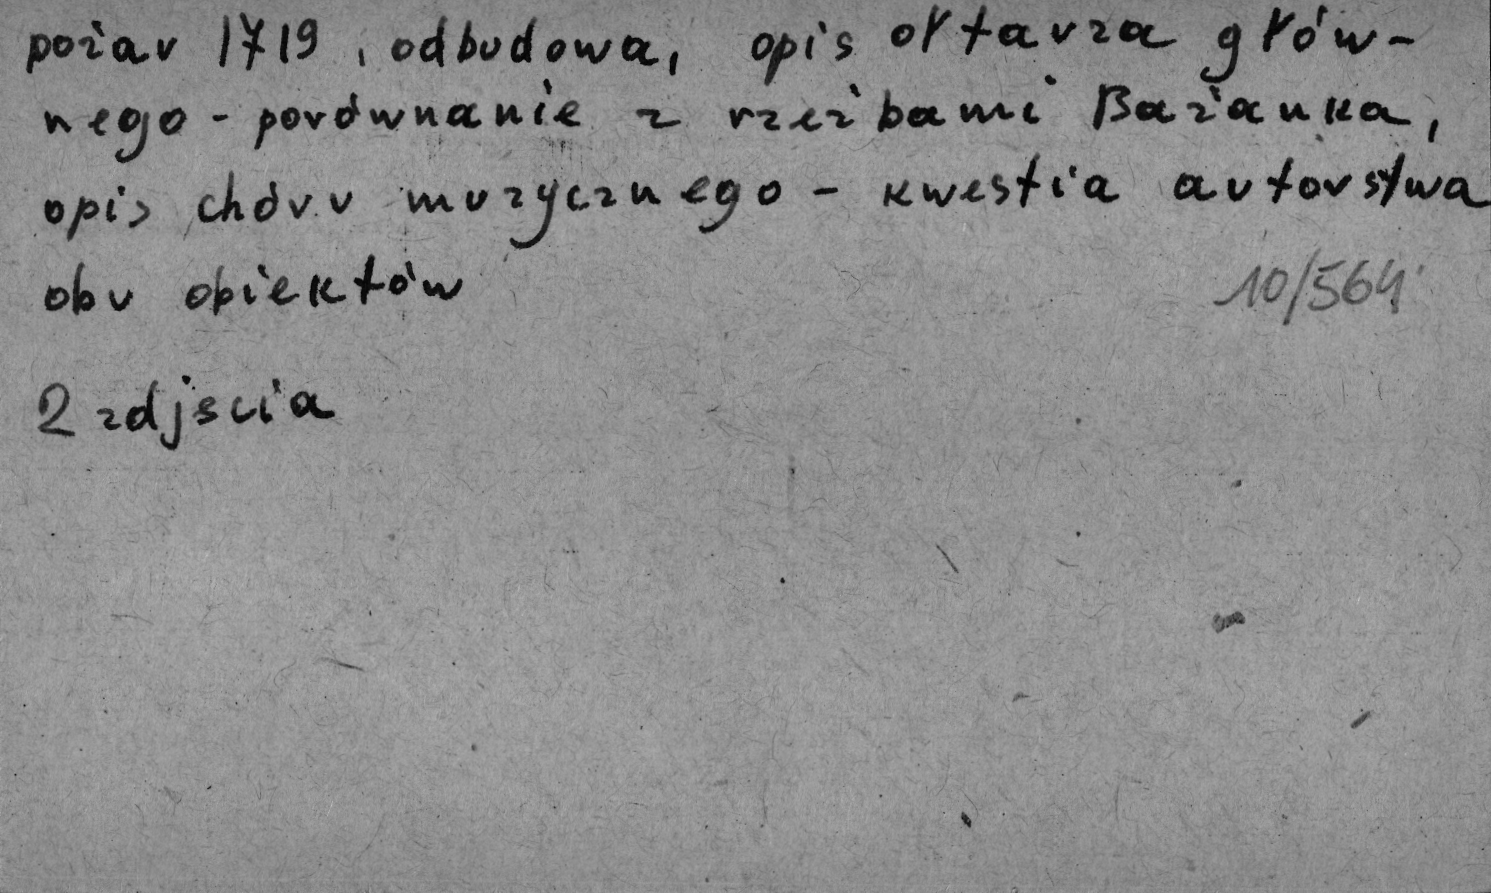 pożar 1719, odbudowa, opis ołtarza głów-
nego - porównanie z rzeźbami Bażanka,
opis chóru muzycznego - kwestia autorstwa
obu obiektów
10/564
2 zdjścia